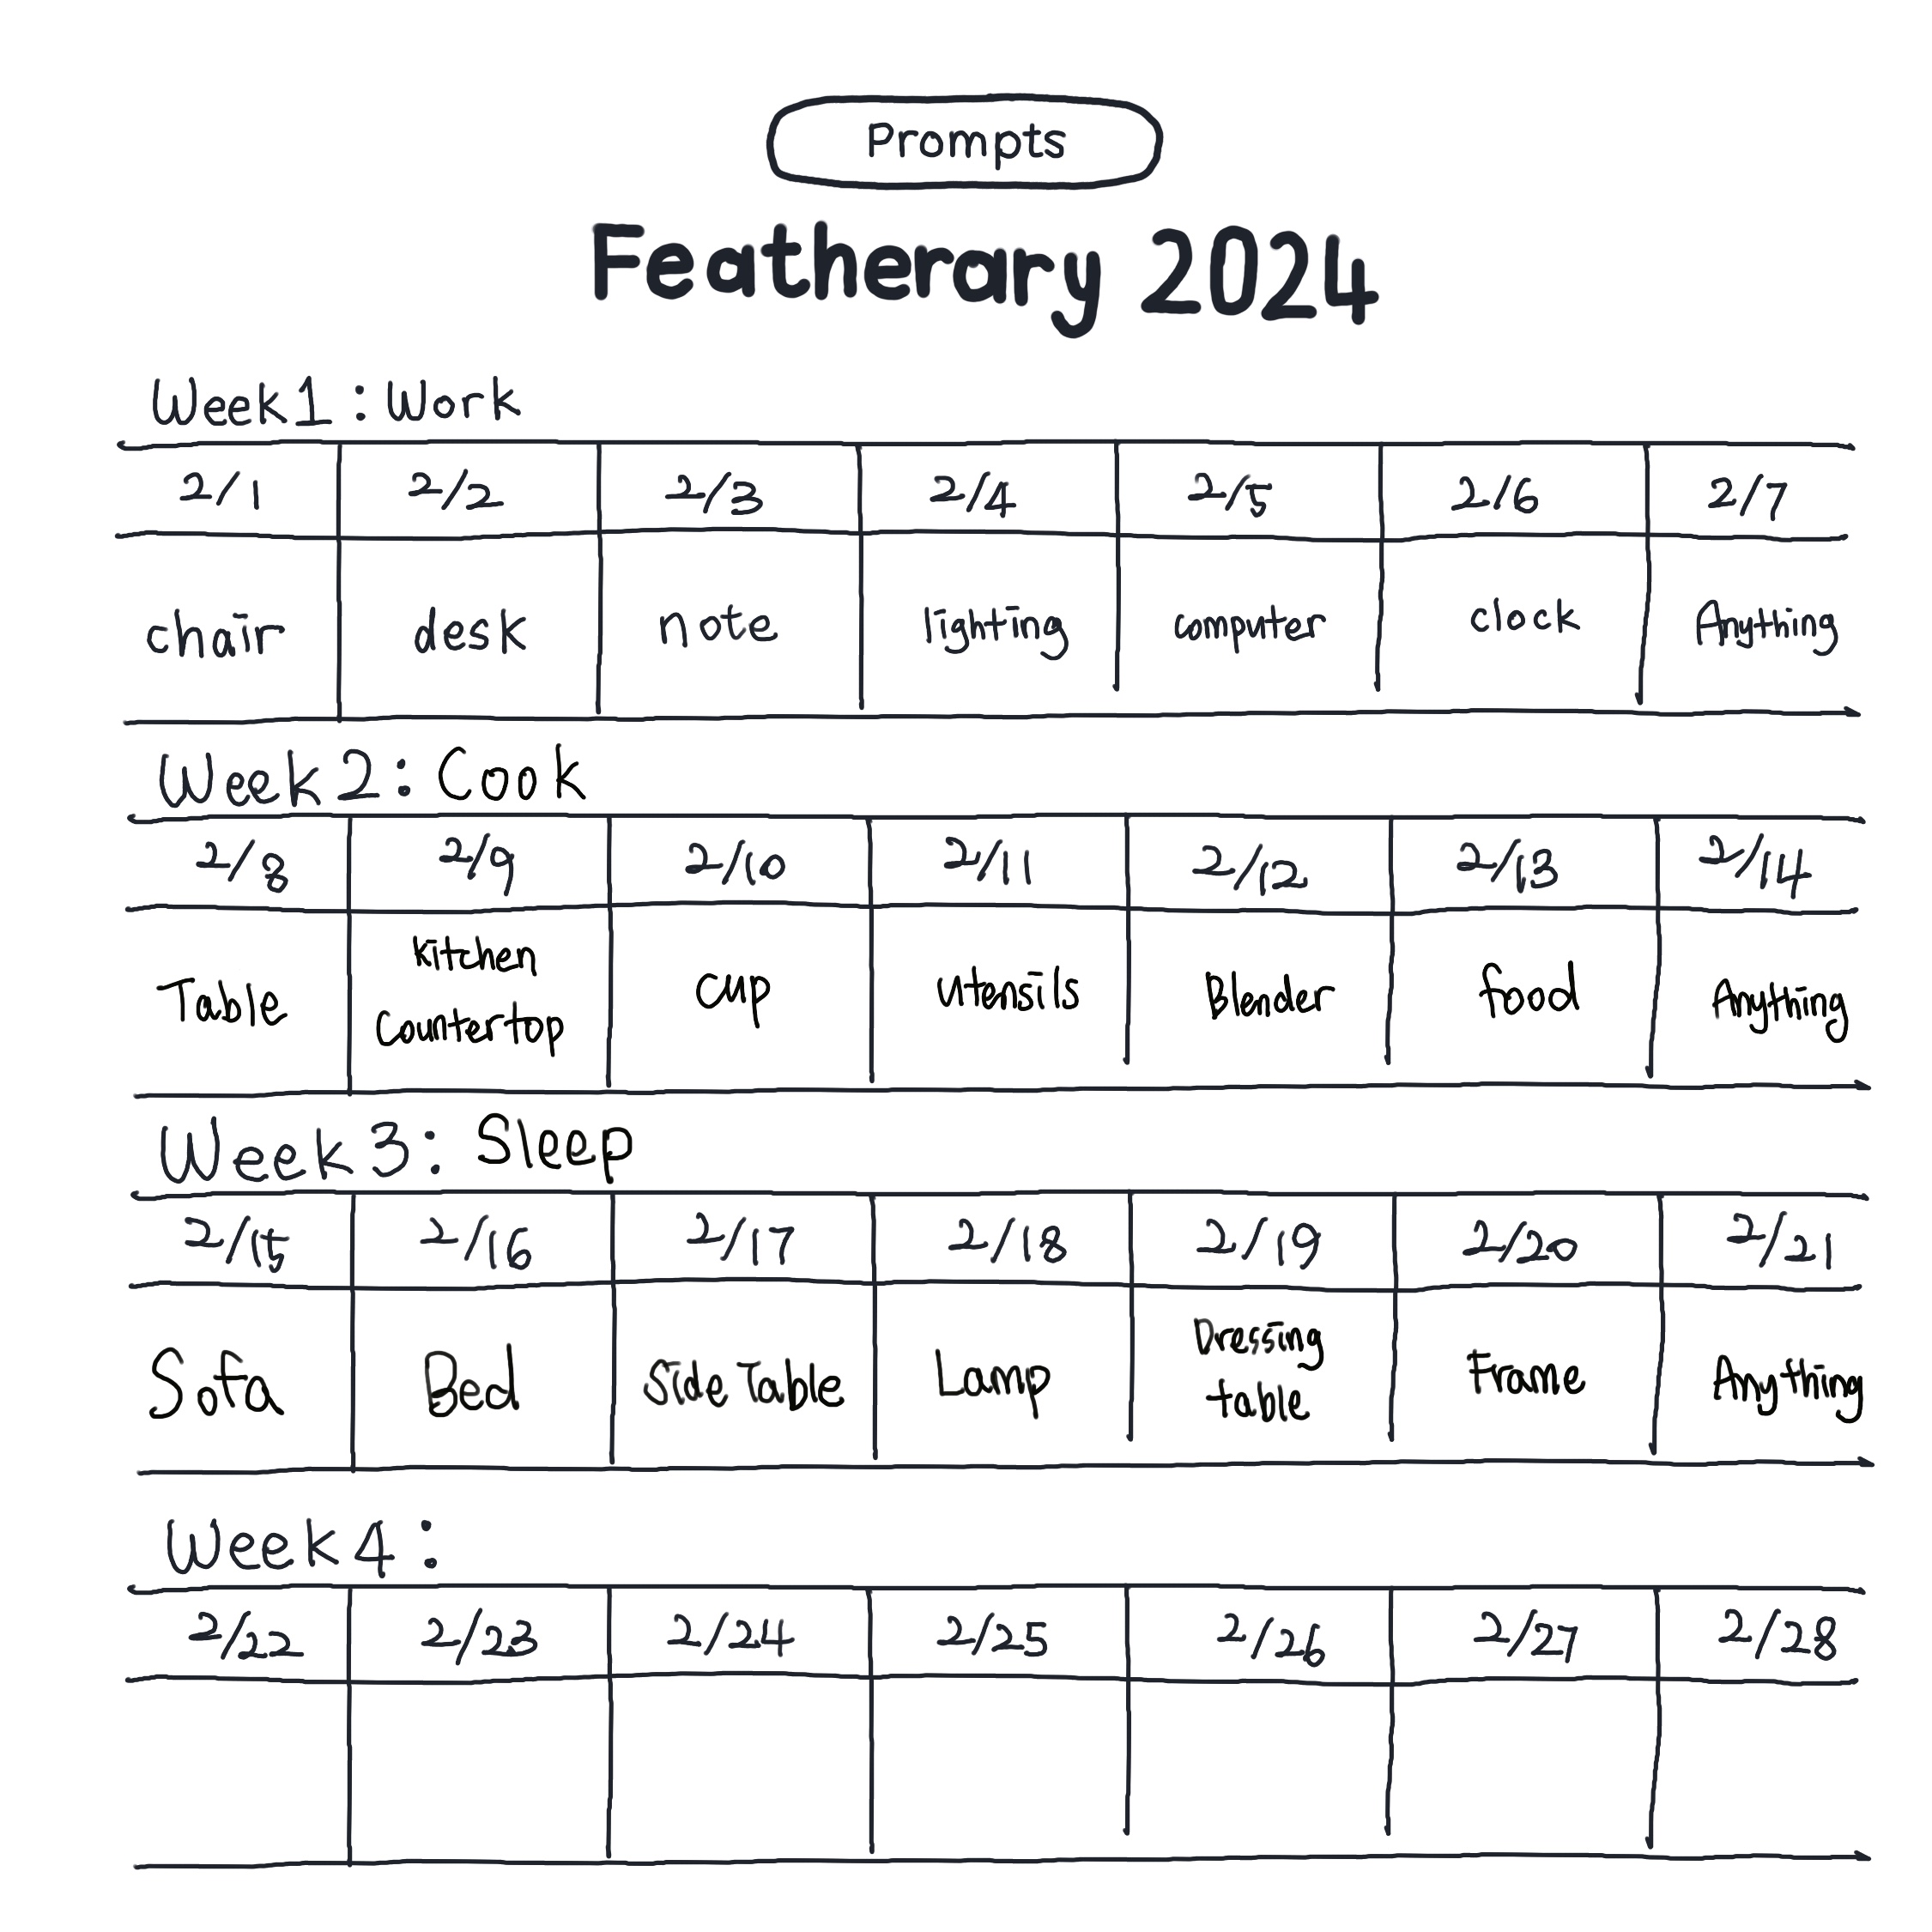 Prompts
Featherary 2024
Week 1 : Work
2/1 2/2 2/3 2/4 2/5 2/6 2/7
chair desk note lighting computer clock Anything
Week 2 : Cook
2/8 2/9 2/10 2/11 2/12 2/13 2/14
Table Kitchen Countertop cup utensils Blender food Anything
Week 3 : Sleep
2/15 2/16 2/17 2/18 2/19 2/20 2/21
Sofa Bed Side Table Lamp Dressing table Frame Anything
Week 4 :
2/22 2/23 2/24 2/25 2/26 2/27 2/28